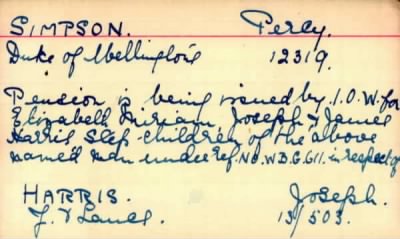 SIMPSON. Percy.
Duke of Wellington's 12319.
Pension is being issued by I.O.W. for
Elizabeth Miriam, Joseph & James
Harris Step-children of the above
named man under Ref. No. W.D.G. 611. in respect of
HARRIS. Joseph.
Y. & Lancs. 13/503.